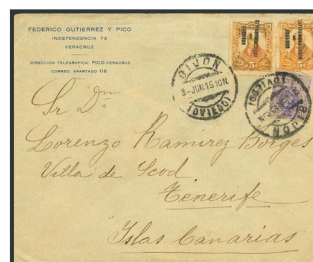 FEDERICO GUTIERREZ Y PICO
INDEPENDENCIA 72
VERACRUZ
DIRECCION TELEGRAFICA: PICO-VERACRUZ
CORREO: APARTADO 118
GIJON
3-JUN.15 10N
(OVIEDO)
GIJON
Sr. Dn
Lorenzo Ramirez Borges
Villa de Icod.
Tenerife
Islas Canarias